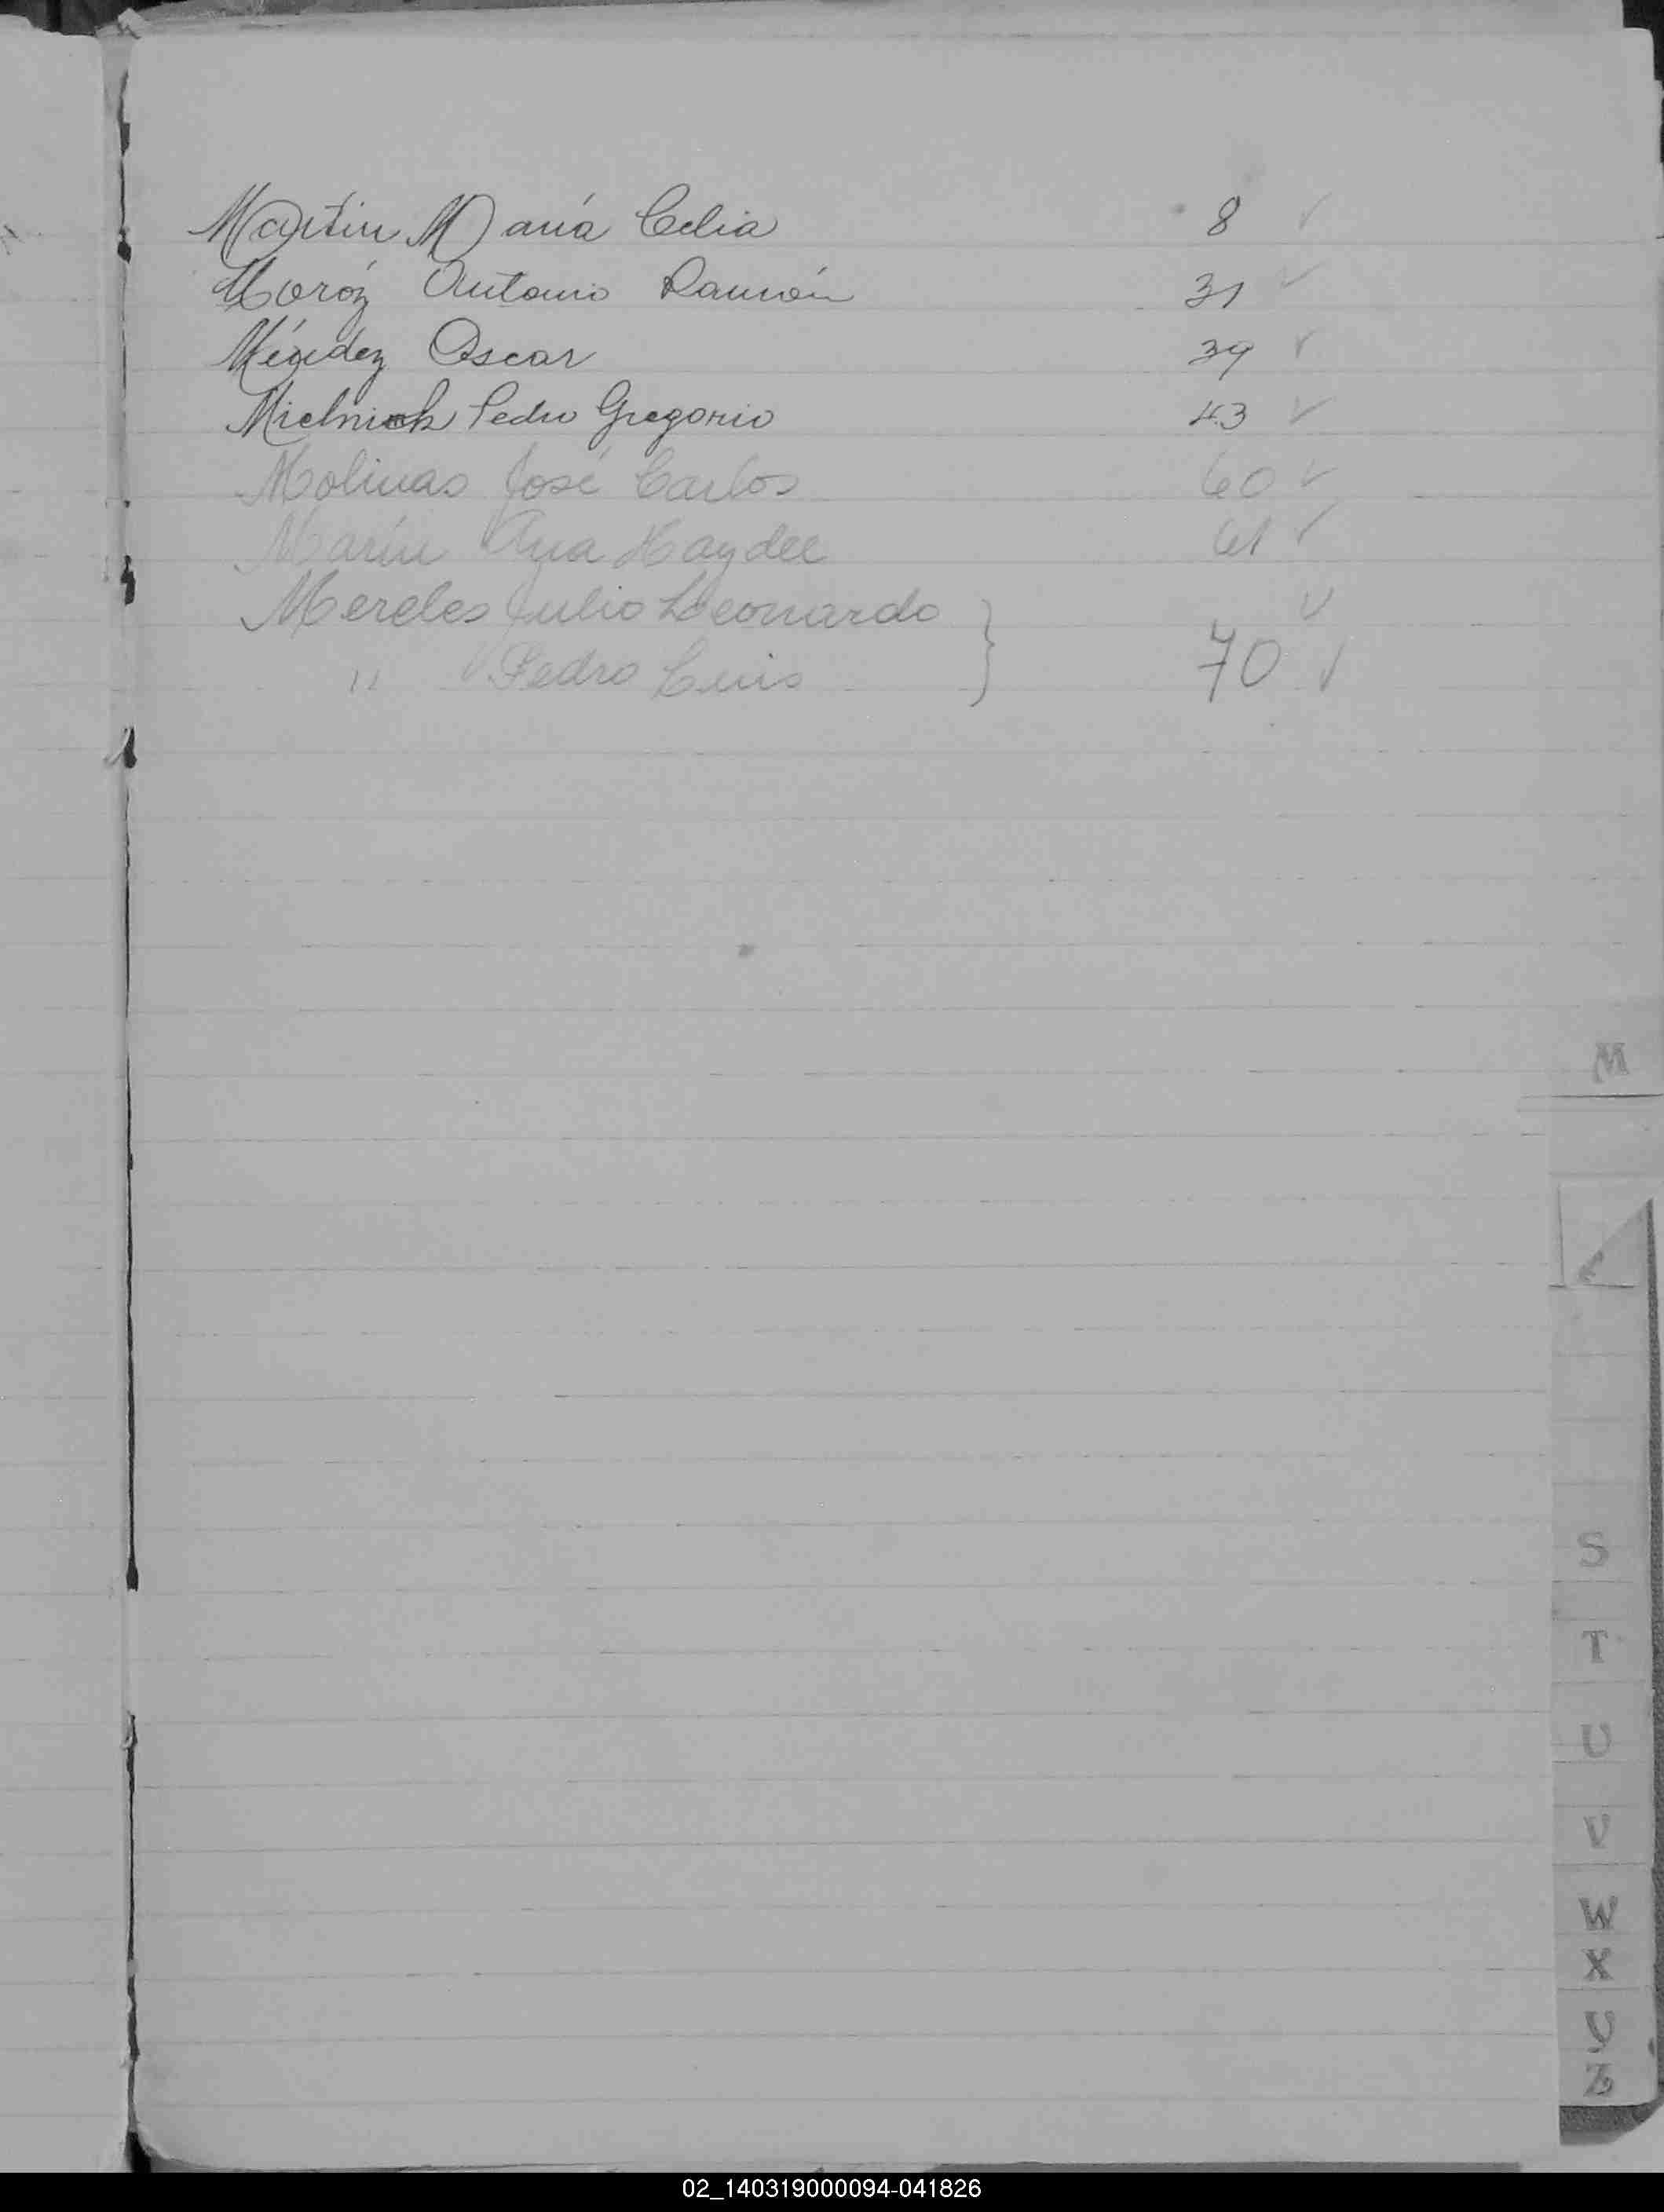 Martin María Celia 8 ✓
Moróz Antonio Ramón 31 ✓
Méndez Oscar 39 ✓
Mielnick Pedro Gregorio 43 ✓
Molinas José Carlos 60 ✓
Marín Ana Haydee 61 ✓
Mereles Julio Leonardo ✓
" Pedro Luis } 70 ✓
M
S
T
U
V
W
X
Y
Z
02_140319000094-041826